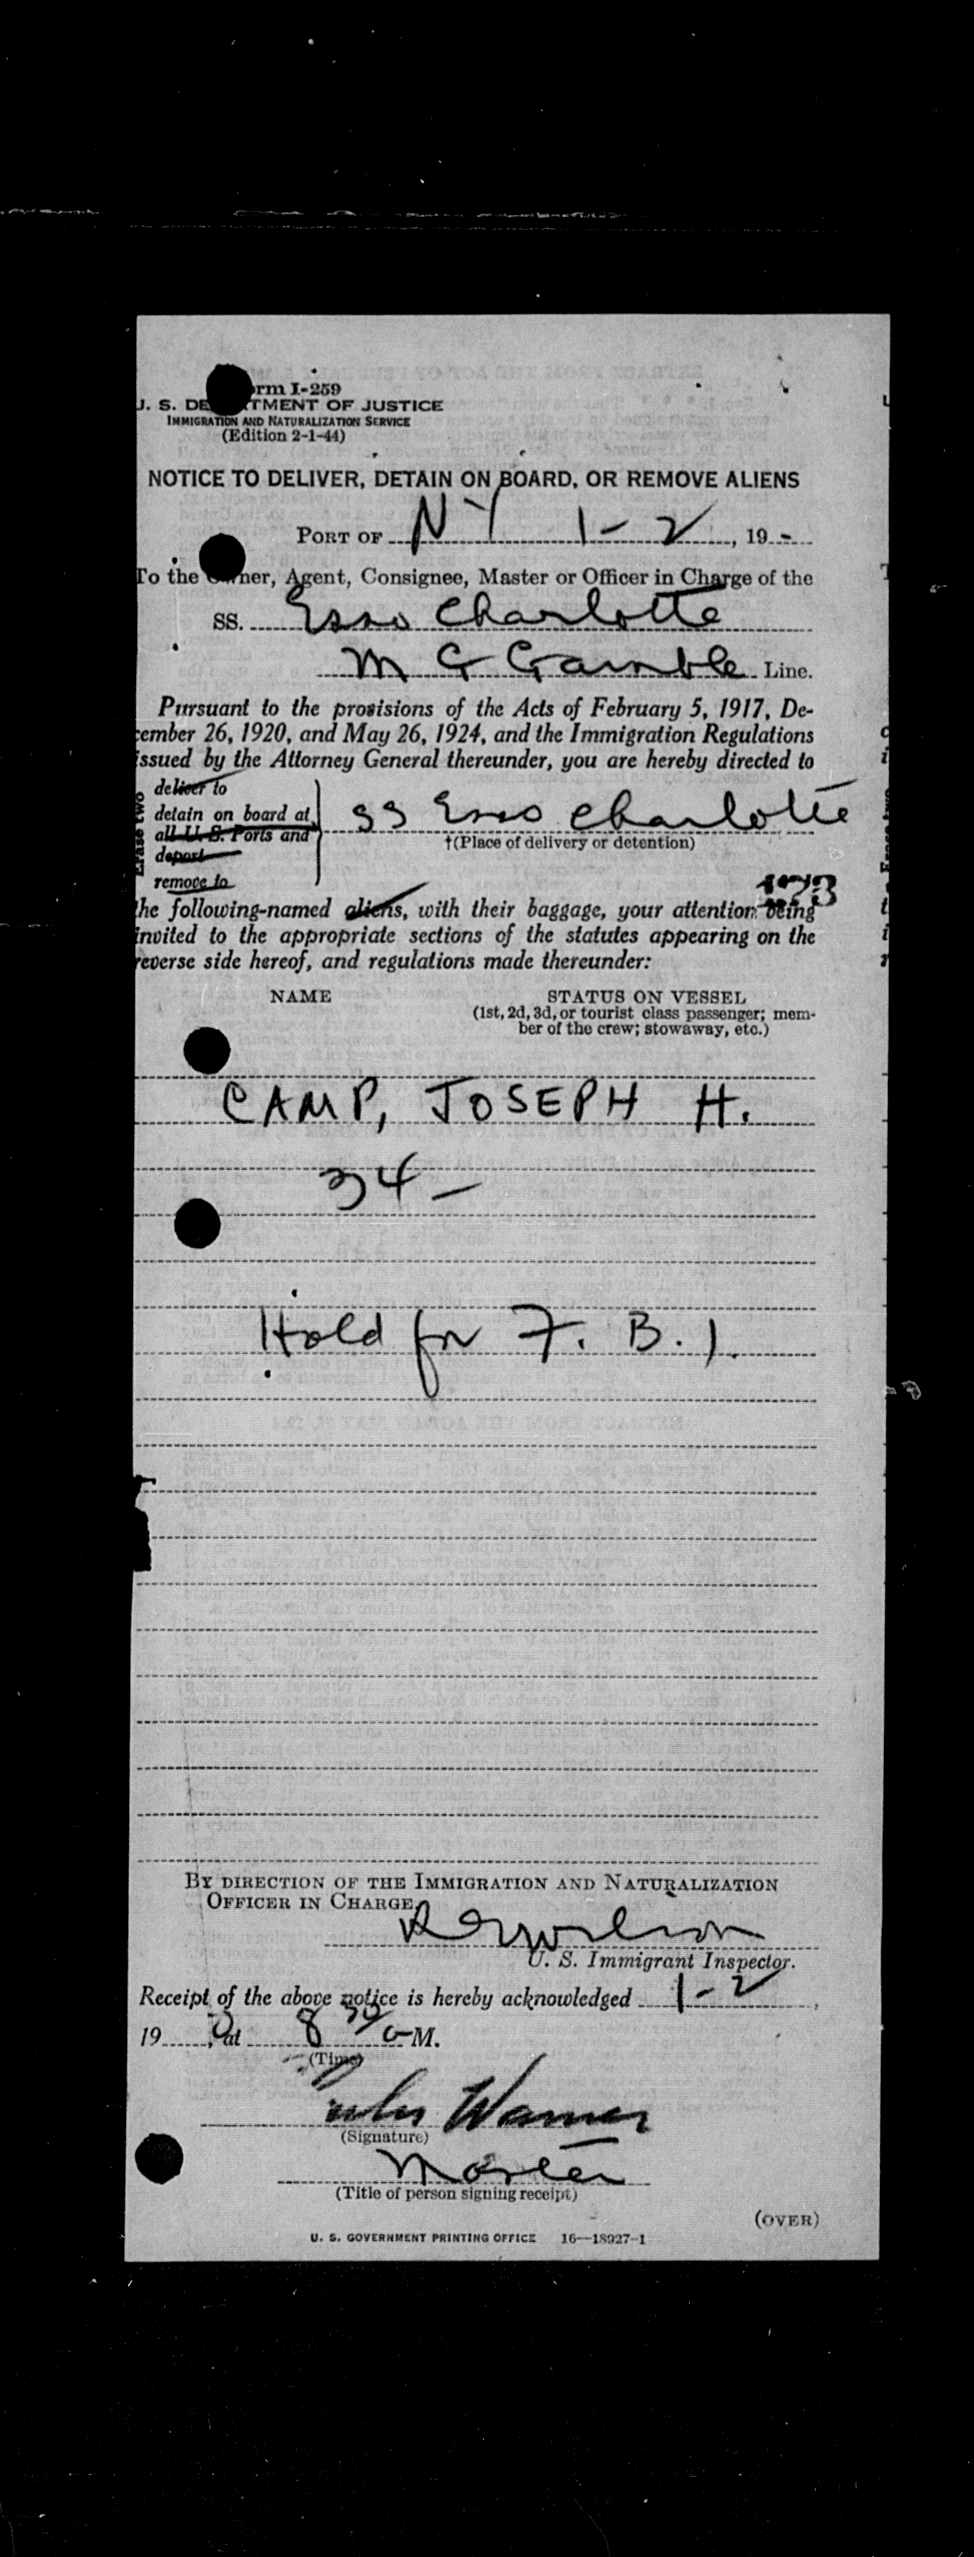 rm I-259
U. S. DE TMENT OF JUSTICE
IMMIGRATION AND NATURALIZATION SERVICE
(Edition 2-1-44)
NOTICE TO DELIVER, DETAIN ON BOARD, OR REMOVE ALIENS
PORT OF NY 1-2, 19 -
To the Owner, Agent, Consignee, Master or Officer in Charge of the
SS. Esso Charlotte
M G Gamble Line.
Pursuant to the provisions of the Acts of February 5, 1917, De-
cember 26, 1920, and May 26, 1924, and the Immigration Regulations
issued by the Attorney General thereunder, you are hereby directed to
deliver to
detain on board at
all U. S. Ports and
deport
remove to
Erase two
SS Esso Charlotte
†(Place of delivery or detention)
173
the following-named aliens, with their baggage, your attention being
invited to the appropriate sections of the statutes appearing on the
reverse side hereof, and regulations made thereunder:
NAME STATUS ON VESSEL
(1st, 2d, 3d, or tourist class passenger; mem-
ber of the crew; stowaway, etc.)
CAMP, JOSEPH H.
34 -
Hold for F. B. I.
BY DIRECTION OF THE IMMIGRATION AND NATURALIZATION
OFFICER IN CHARGE,
U. S. Immigrant Inspector.
Receipt of the above notice is hereby acknowledged 1-2,
19 , at 8 30 a M.
(Time)
Warner
(Signature)
Master
(Title of person signing receipt)
(OVER)
U. S. GOVERNMENT PRINTING OFFICE 16—18927-1